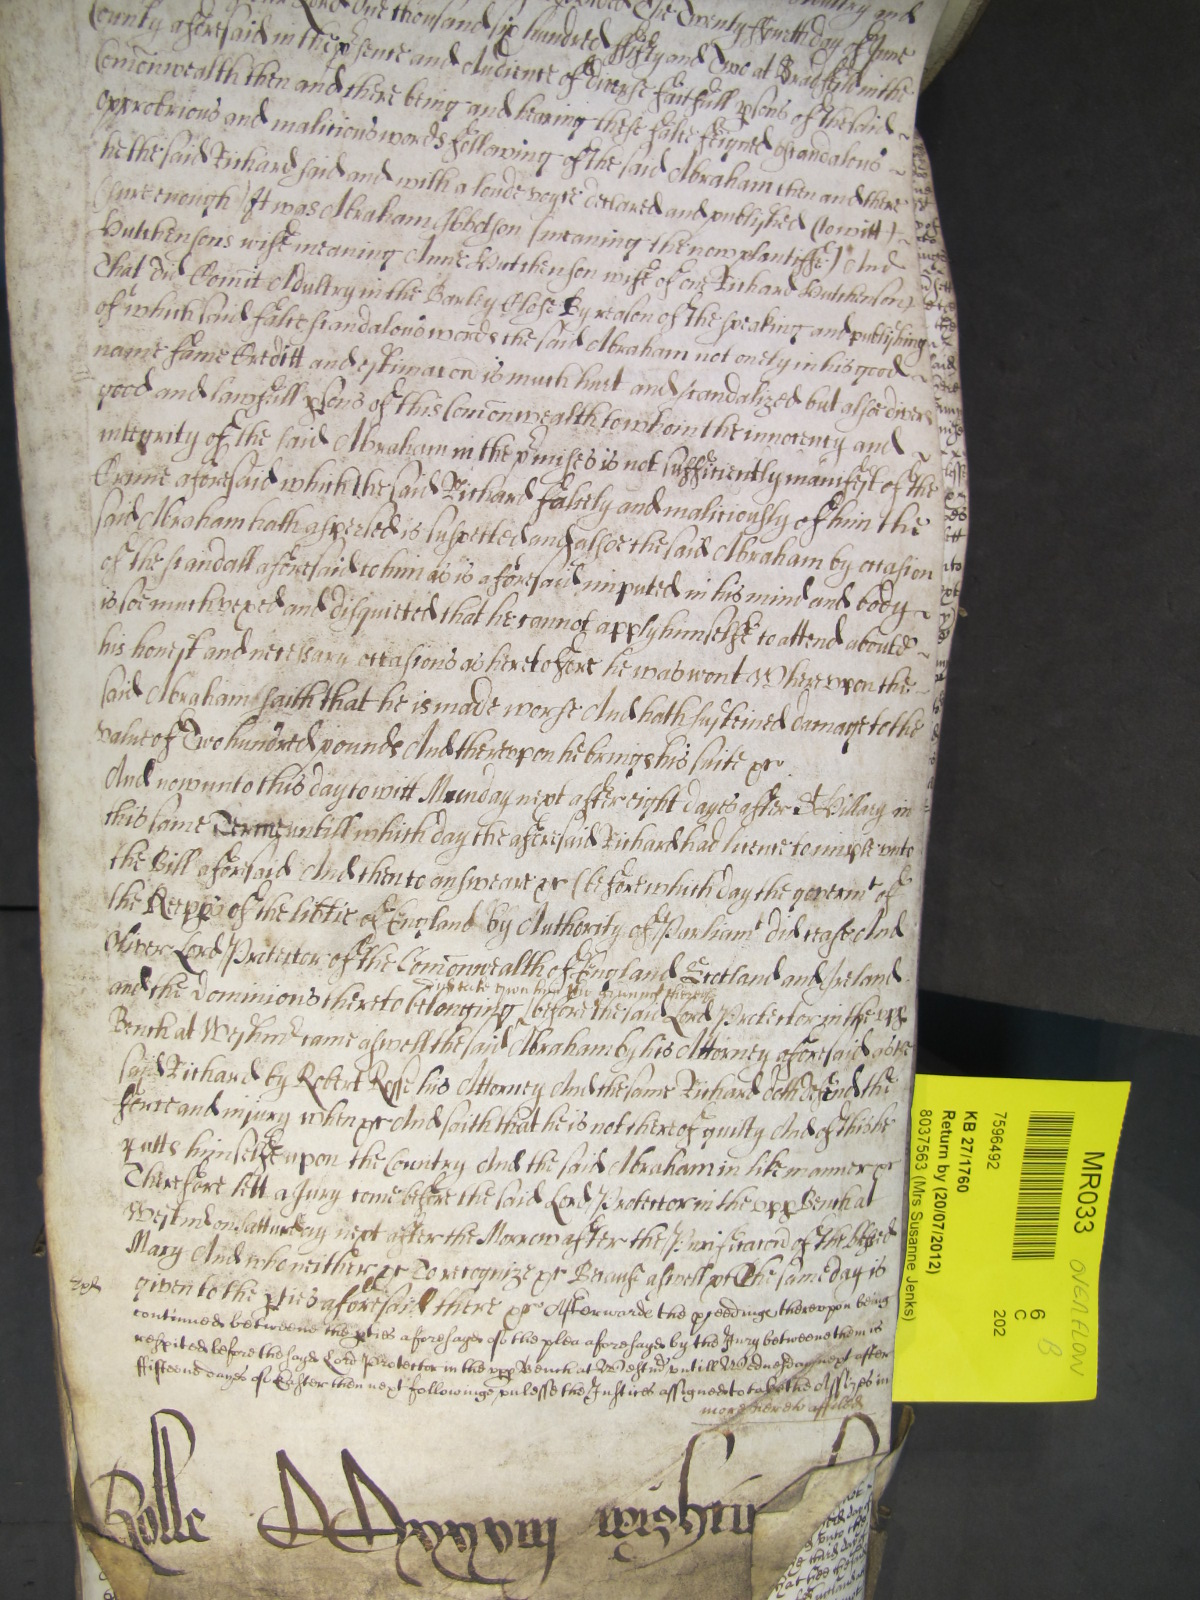 Lord One thousand six hundred fifty and Two at Bradfeild in the
County aforesaid in the psence and Audience of diverse faithfull psons of the said
Comonwealth then and there being and hearing these false feigned scandalous
opprobrious and malitious words following of the said Abraham then and there
he the said Richard said and with a loude voyce declared and published (to witt)
(sure enough) It was Abraham Ibbotson (meaning the now plantiffe) And
Hutchensons wife meaning Anne Hutchenson wife of one Richard Hutchenson
That did Comitt Adultry in the Barley Close By reason of the speaking and publishing
of which said false scandalous words the said Abraham not onely in his good
name fame Creditt and estimacon is much hurt and scandalized but alsoe divers
good and lawfull psons of this Comonwealth to whom the innocency and
integrity of the said Abraham in the pmises is not sufficiently manifest of the
Crime aforesaid which the said Richard falsely and malitiously of him the
said Abraham hath aspersed is suspected and alsoe the said Abraham by occasion
of the scandall aforesaid to him as is aforesaid imputed in his mind and body
is soe much vexed and disquieted that he cannot apply himselfe to attend aboute
his honest and necessary occasions as heretofore he was wont Wherevpon the
said Abraham saith that he is made worse And hath susteined damage to the
value of Two hundred pounds And therevpon he brings his suite &c
And now unto this day to witt Munday next after eight dayes after St Hillary in
this same Terme untill which day the aforesaid Richard had licence to imple unto
the Bill aforesaid And then to answeare &c (before which day the governmt of
the Keeps of the libtie of England by Authority of Parliamt did cease And
Oliver Lord Protector of the Comonwealth of England Scotland and Ireland
and the dominions thereto belonging did take upon him the governmt thereof) before the said Lord Protector in the upp
Bench at Westmr came aswell the said Abraham by his Attorney aforesaid as the
said Richard by Robert Rosse his Attorney And the same Richard doth defend the
force and injury when &c And saith that he is not thereof guilty And of this he
putts himselfe upon the Country And the said Abraham in like manner &c
Therefore lett a Jury come before the said Lord Protector in the upp Bench at
Westm on Satturday next after the Morrow after the Purificacon of the blessed
Mary And who neither &c To recognize &c Because aswell &c The same day is
given to the pties aforesaid there &c Afterwards the pceedings therevpon being
continued betweene the pties aforesayd of the plea aforesayd by the Jury betweene them is
respited before the sayd Lord Protector in the upp Bench at Westmr untill Wednesday next after
fifteene dayes of Easter then next followinge vnlesse the Justices assigned to take the Assizes in
more hereto affiled
Rolle
MR033
OVERFLOW
6
C
B
7596492
202
KB 27/1760
Return by (20/07/2012)
8037563 (Mrs Susanne Jenks)